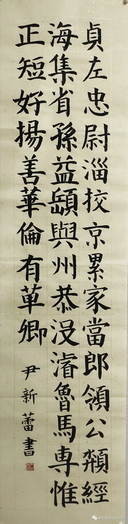 貞左忠尉淄挍京累家當郎領公類經
海集省孫益頤與州恭沒濬魯馬専惟
正短好揚善華倫有革卿
尹新蕾書